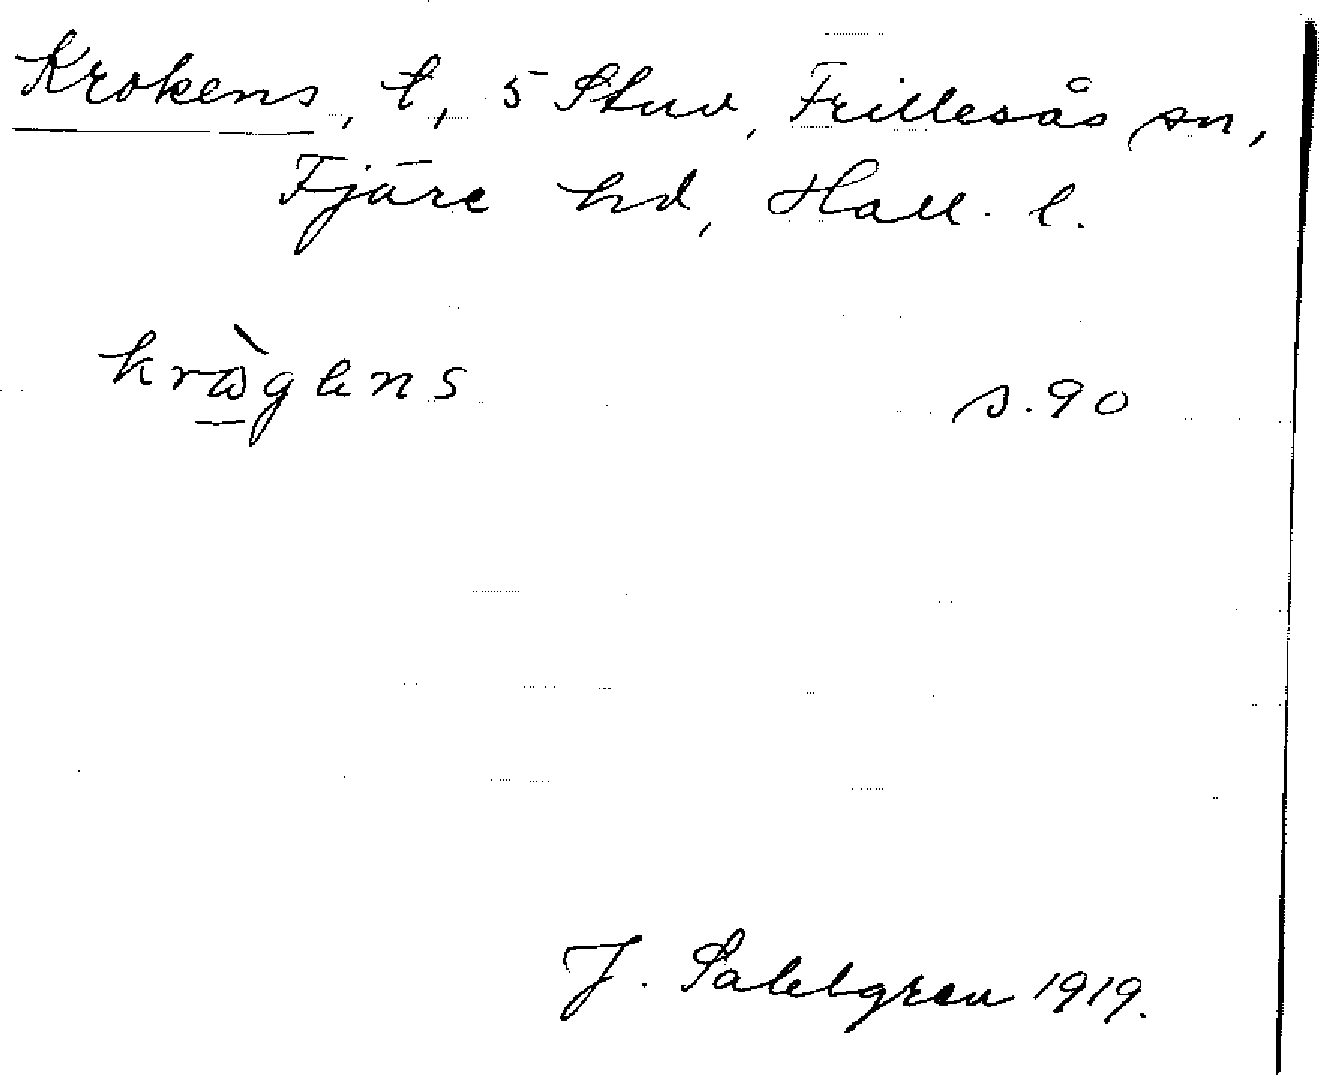 Krokens, t, 5 Stuv, Frillesås sn,
Fjäre hd, Hall. l.
kràgens s. 90
J. Sahlgren 1919.